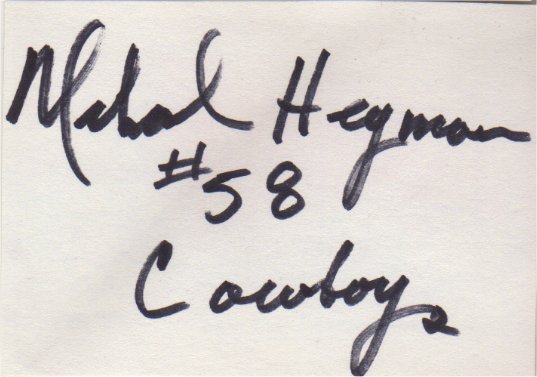 Michael Hegman
#58
Cowboys